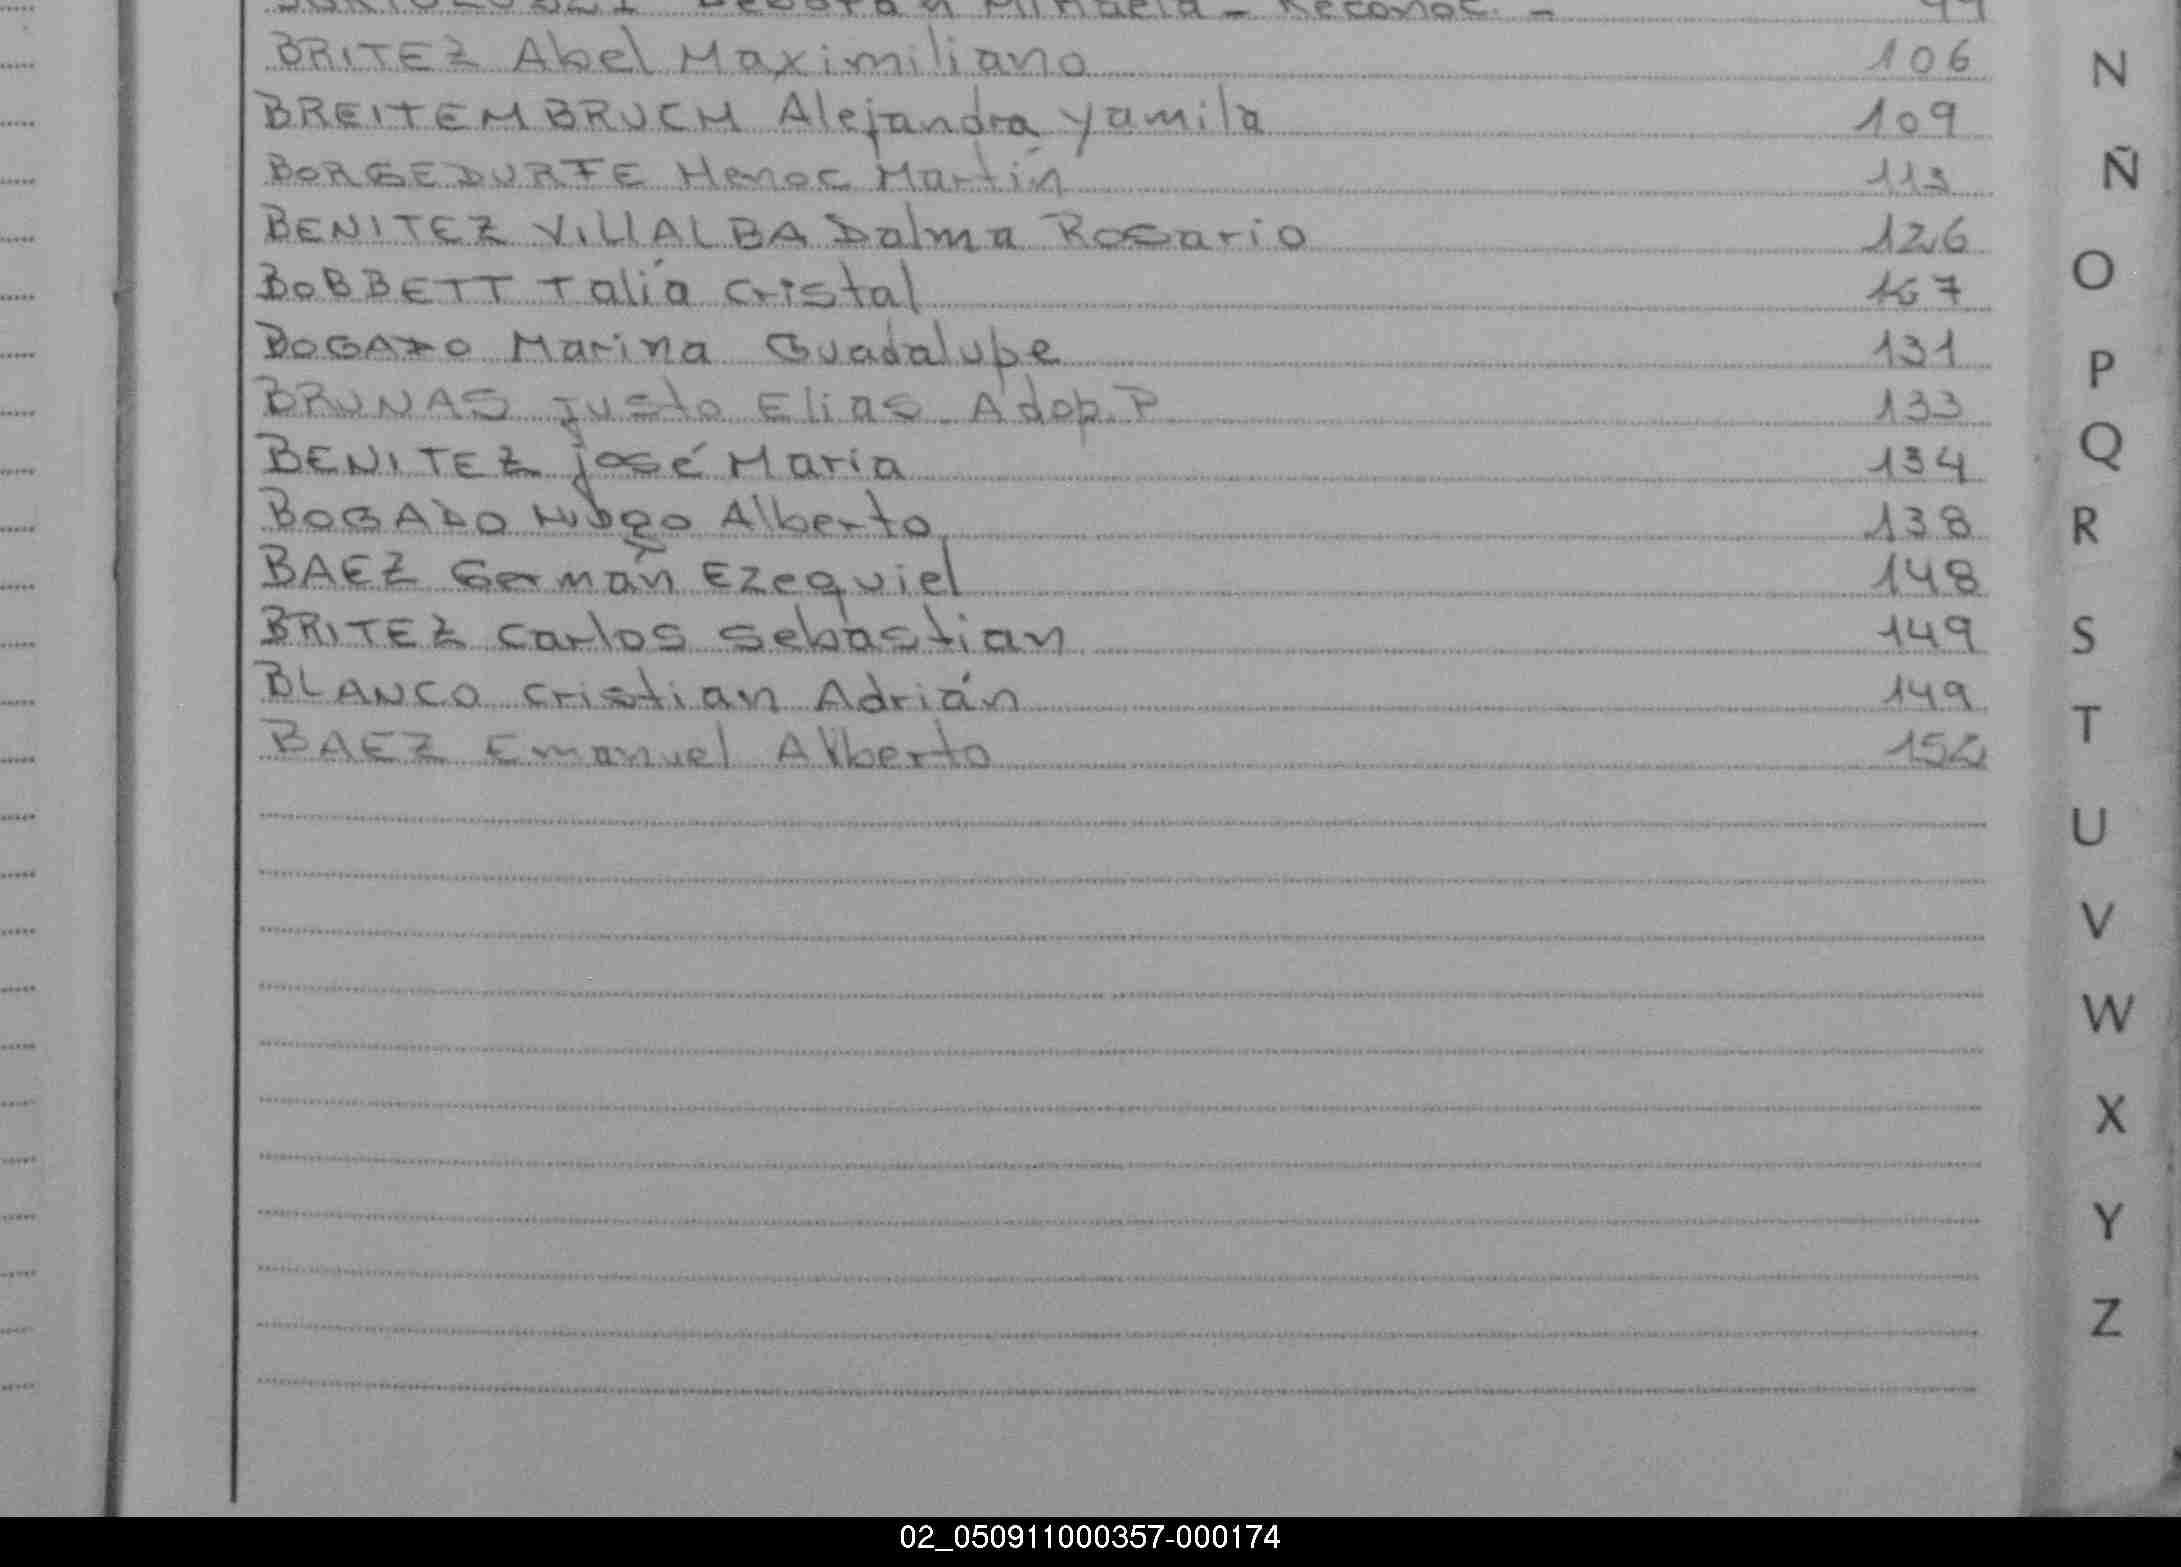 Reconoc. - 99
BRITEZ Abel Maximiliano 106
BREITEMBRUCH Alejandra Yamila 109
BORGEDURFE Henoc Martín 113
BENITEZ VILLALBA Dalma Rosario 126
BOBBETT Talía Cristal 167
BOGADO Marina Guadalupe 131
BRUNAS Justo Elias Adop. P 133
BENITEZ José María 134
BOGADO Hugo Alberto 138
BAEZ Germán Ezequiel 148
BRITEZ Carlos Sebastian 149
BLANCO Cristian Adrián 149
BAEZ Emanuel Alberto 152
N
Ñ
O
P
Q
R
S
T
U
V
W
X
Y
Z
02_050911000357-000174